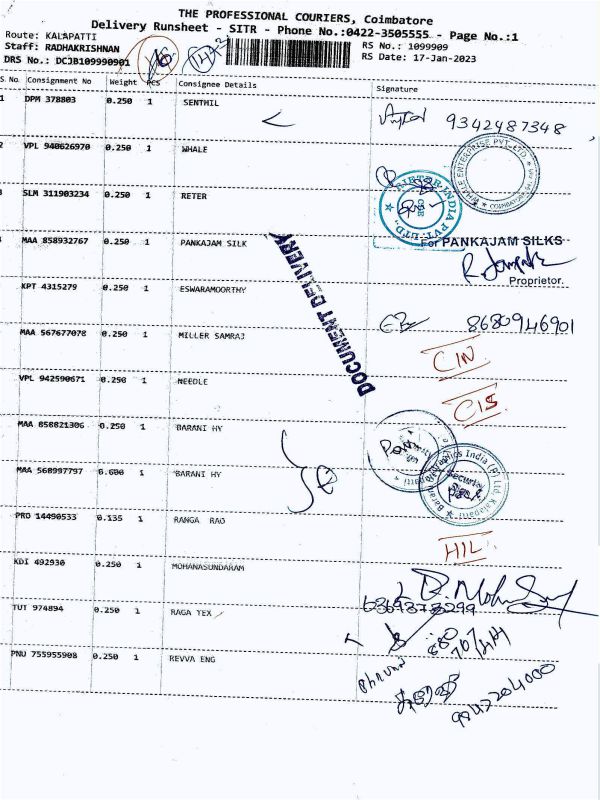 THE PROFESSIONAL COURIERS, Coimbatore
Delivery Runsheet - SITR - Phone No.:0422-3505555 - Page No.:1
Route: KALAPATTI
RS No.: 1099909
Staff: RADHAKRISHNAN
RS Date: 17-Jan-2023
DRS No.: DCJB109990901
S. No Consignment No Weight PCS Consignee Details Signature
1 DPM 378803 0.250 1 SENTHIL 9342487348
2 VPL 940626970 0.250 1 WHALE
WHALE ENTERPRISE PVT. LTD.
3 SLM 311903234 0.250 1 RETER
4 MAA 858932767 0.250 1 PANKAJAM SILK
For PANKAJAM SILKS
Proprietor.
DOCUMENT DELIVERY
KPT 4315279 0.250 1 ESWARAMOORTHY 8680946901
MAA 567677078 0.250 1 MILLER SAMRAJ
CIN
VPL 942590671 0.250 1 NEEDLE
CIS
MAA 858821306 0.250 1 BARANI HY
MAA 568997797 0.600 1 BARANI HY
PRO 14490533 0.135 1 RANGA RAO
HIL
KDI 492930 0.250 1 MOHANASUNDARAM
TUT 974894 0.250 1 RAGA TEX
PNU 755955908 0.250 1 REVVA ENG
9947204000